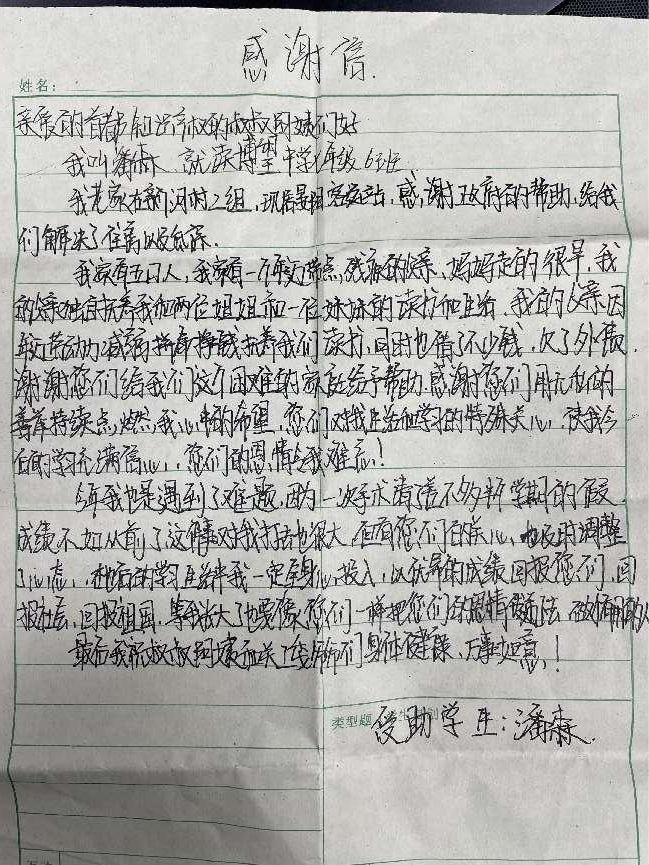 感谢信
姓名：
亲爱的首都知出高校的叔叔阿姨们好
我叫潘森 就读博望中学 年级6班
我老家在新河村二组，现居易安置点，感谢政府的帮助，给我
们解决了住房以及低保。
我家有五口人，我家有一年较带点残疾的父亲，妈妈走的很早，我
的父亲独自抚养我和两位姐姐和一位妹妹的读书和生活，我的父亲因
年劳动力减弱 挣钱抚养我们读书，同时也借了不少钱，欠了外债，
谢谢您们给我们这个困难的家庭给予帮助，感谢您们用无私的
善举持续点燃我心中的希望，您们对我生活和学习的特殊关心，使我今
后的学习充满信心，您们的恩情令我难忘！
今年我也是遇到了难题，因为一次手术请了差不多半学期的假，
成绩不如从前了，这件事对我打击也很大，但有您们的关心，也及时调整
了心态，在我后的学习生活中我一定全身心投入，以优异的成绩回报您们，回
报社会，回报祖国，等我长大了也要像您们一样把您们的恩情 ，
最后我祝叔叔阿姨 们身体健康，万事如意！
类型题
受助学生：潘森